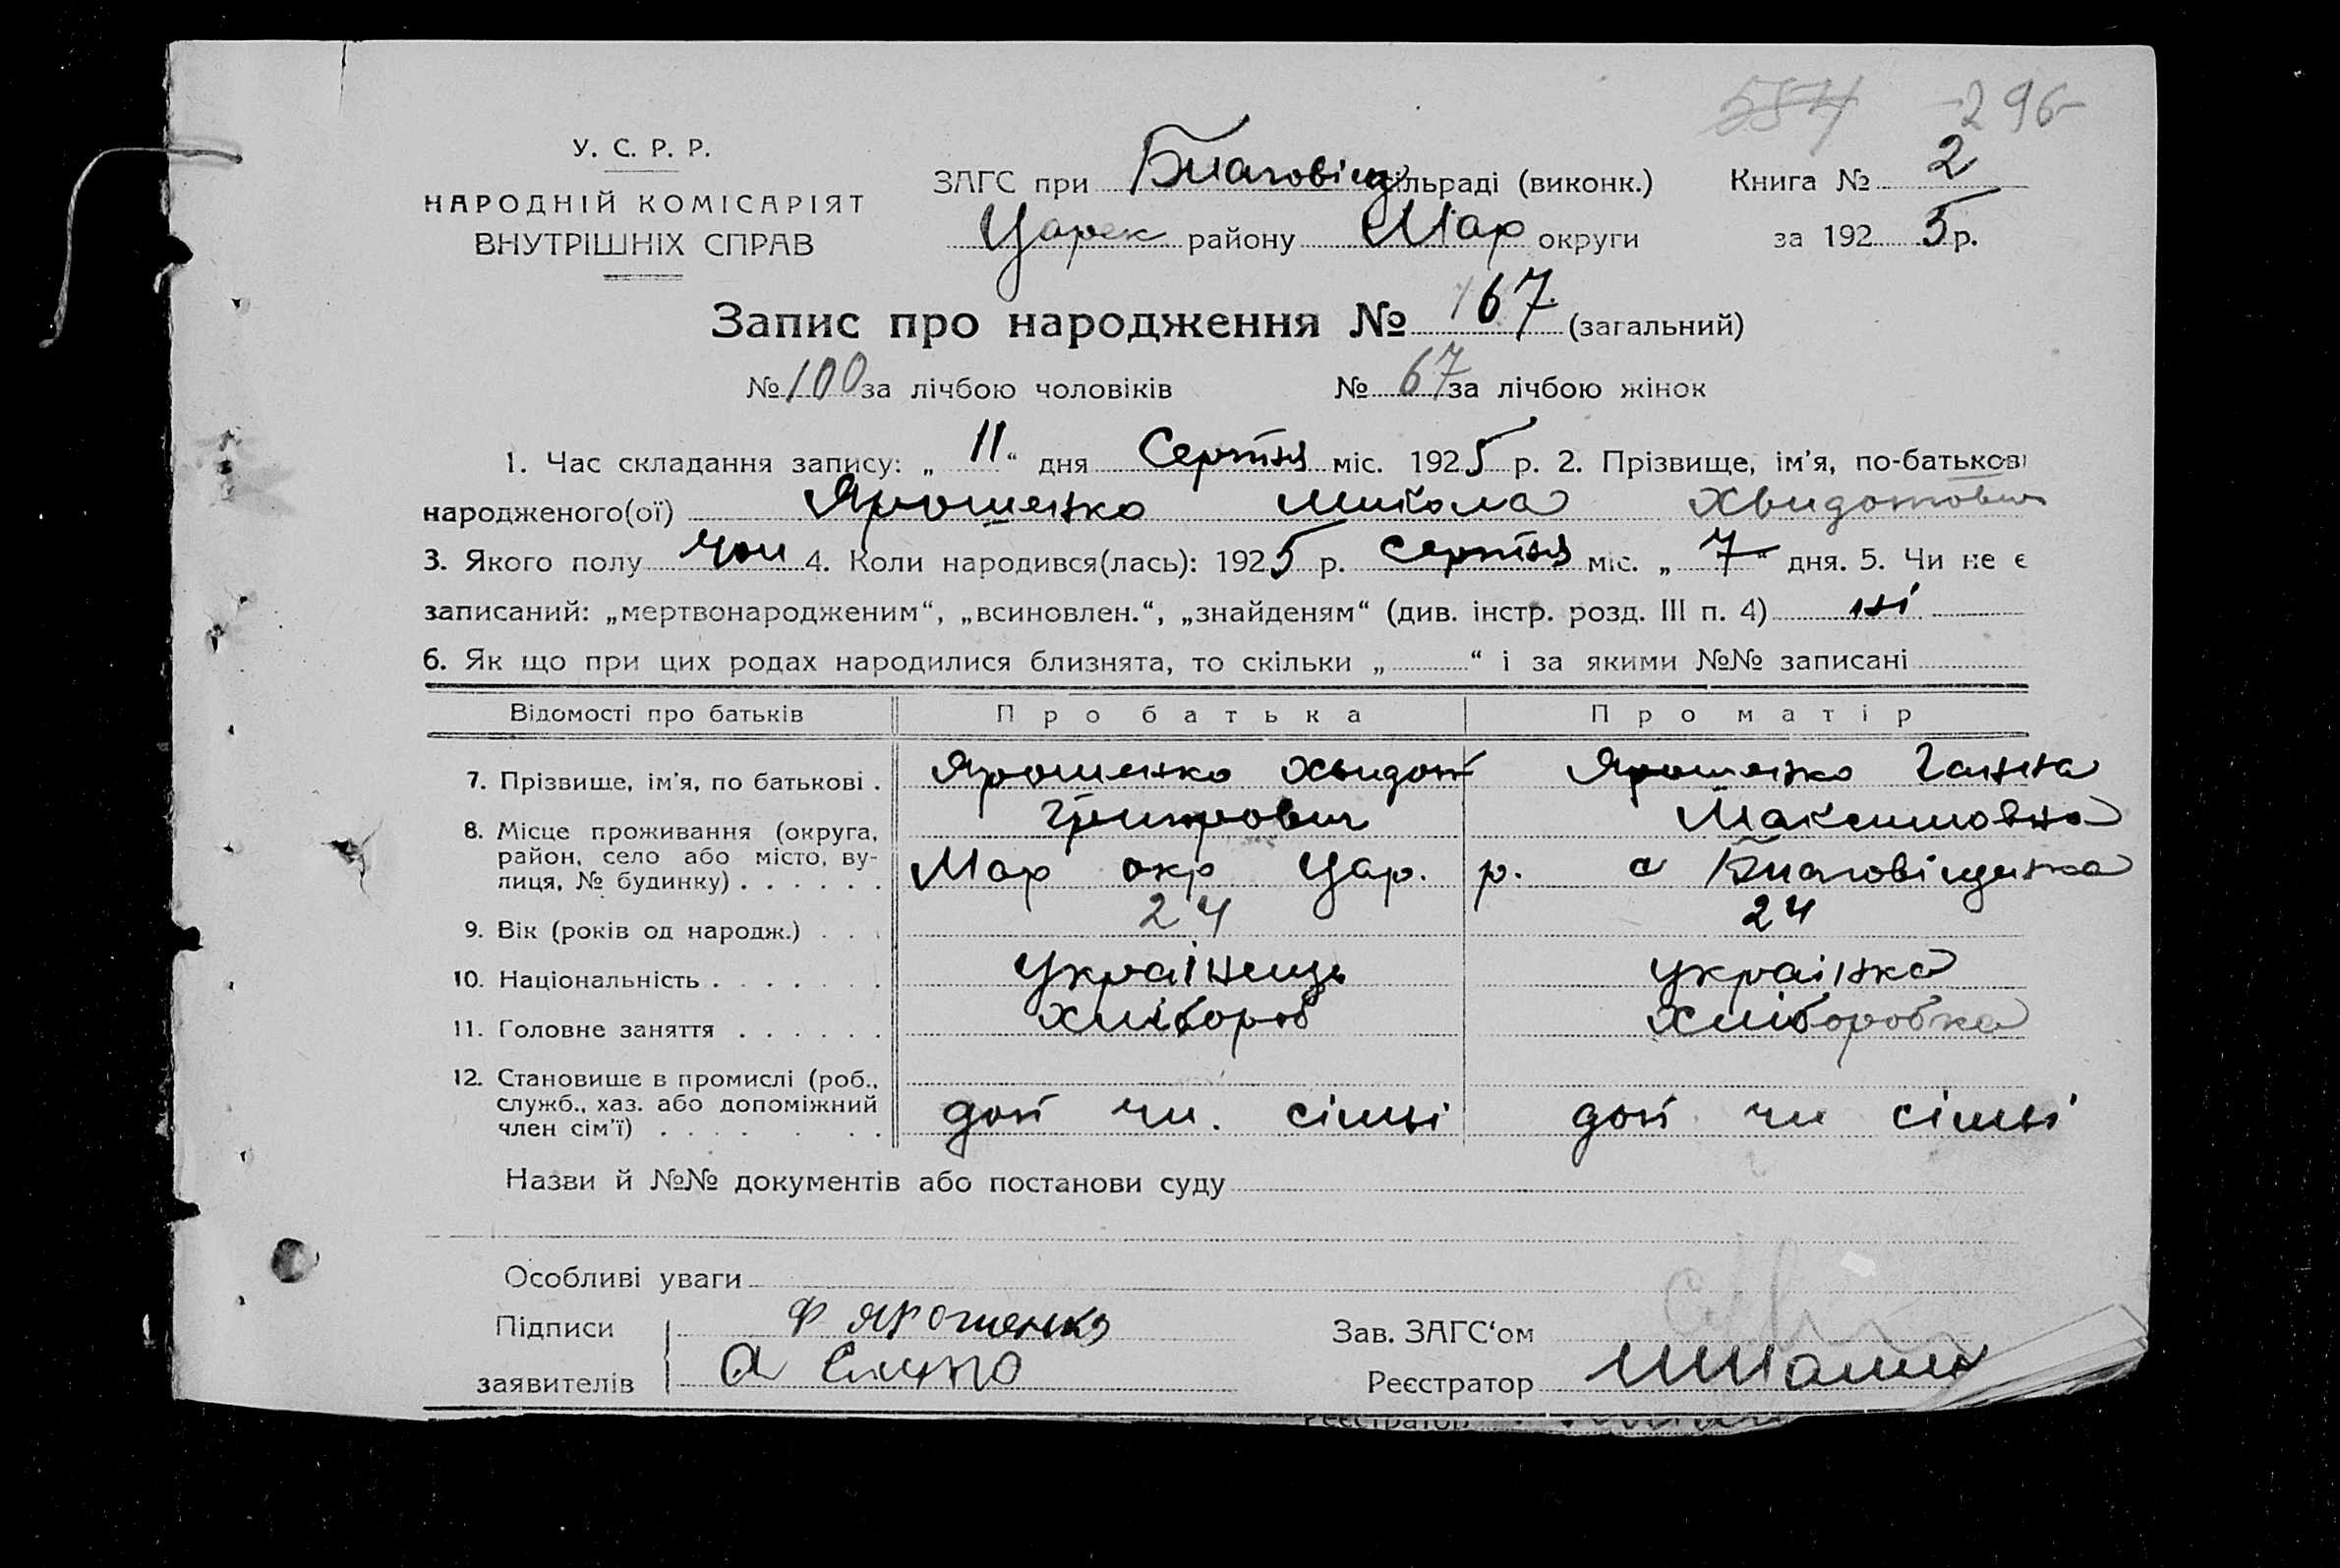 554 -296-
У. С. Р. Р.
НАРОДНІЙ КОМІСАРІЯТ
ВНУТРІШНІХ СПРАВ
ЗАГС при Благовіщ сільраді (виконк.) Книга № 2
Царек району Мар округи за 1925 р.
Запис про народження № 167 (загальний)
№ 100 за лічбою чоловіків № 67 за лічбою жінок
1. Час складання запису: „ 11 “ дня Серпня міс. 1925 р. 2. Прізвище, ім'я, по-батькові
народженого(ої) Ярошенко Микола Хвидотович
3. Якого полу чол 4. Коли народився(лась): 1925 р. Серпня міс. „ 7 “ дня. 5. Чи не є
записаний: „мертвонародженим“, „всиновлен.“, „знайденям“ (див. інстр. розд. III п. 4) ні
6. Як що при цих родах народилися близнята, то скільки „ “ і за якими №№ записані
Відомості про батьків Про батька Про матір
7. Прізвище, ім'я, по батькові . Ярошенко Хвидот Ярошенко Ганна
Григрович Максимовна
8. Місце проживання (округа,
район, село або місто, ву-
лиця, № будинку) . . . . . . Мар окр Цар. р. с Благовіщенка
9. Вік (років од народж.) . . . 24 24
10. Національність . . . . . . . Українець українка
11. Головне заняття . . . . . . Хлібороб Хліборобка
12. Становище в промислі (роб.,
служб., хаз. або допоміжний
член сім'ї) . . . . . . . доп чл. сімьі доп чл сімьі
Назви й №№ документів або постанови суду
Особливі уваги
Підписи Ф Ярошенко Зав. ЗАГС‘ом
заявителів А Реєстратор
Реєстратор